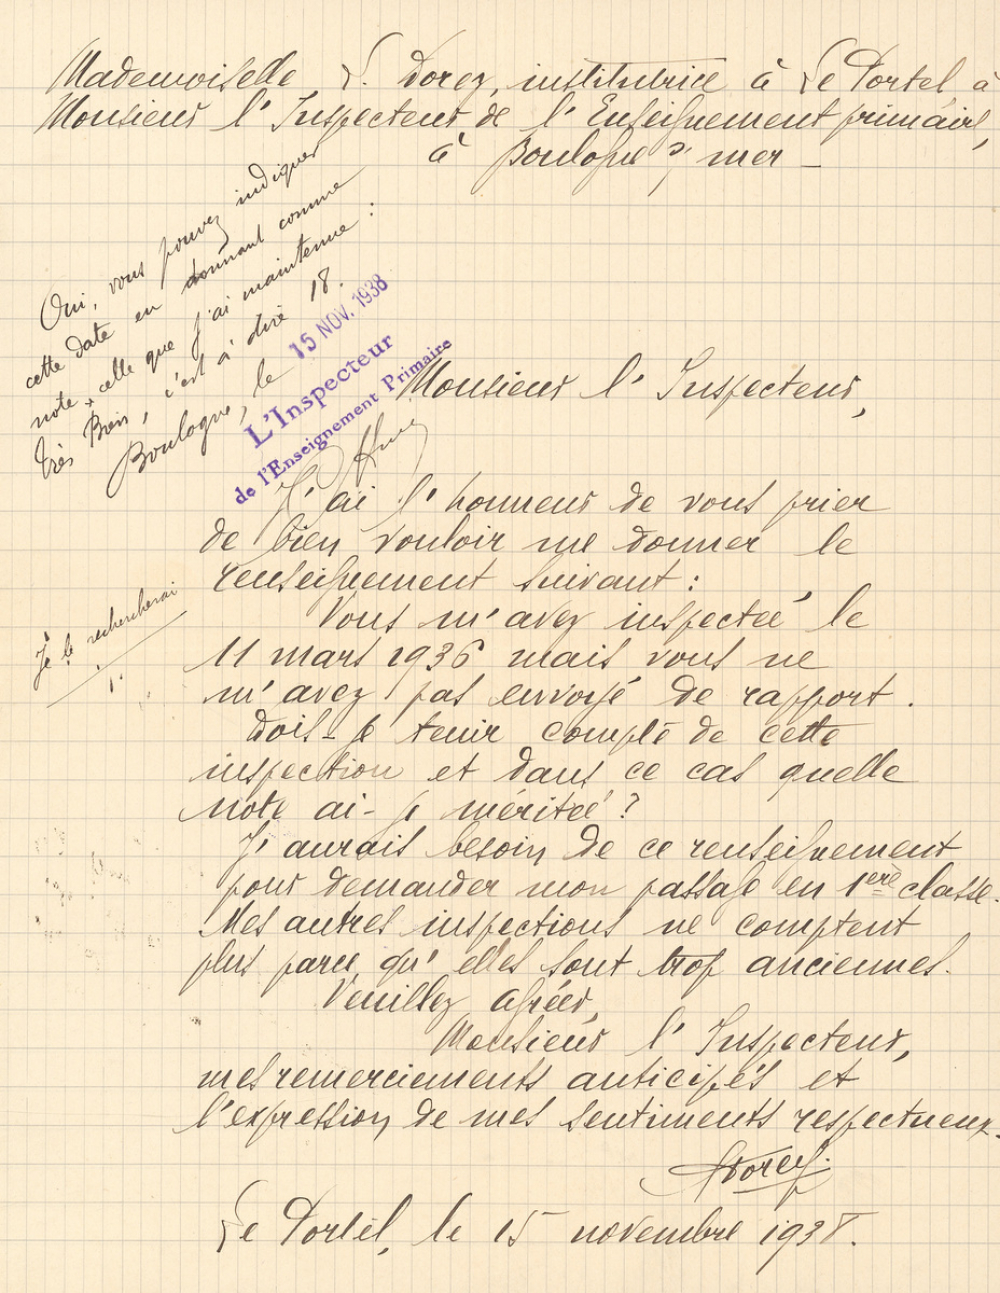 Mademoiselle L. Dorez, institutrice à Le Portel, à
Monsieur l'Inspecteur de l'Enseignement primaire,
à Boulogne s/ mer –
Oui, vous pouvez indiquer
cette date en donnant comme
note celle que j'ai maintenue :
très Bien, c'est à dire 18.
Boulogne, le 15 NOV. 1938
L'Inspecteur
de l'Enseignement Primaire
Monsieur l'Inspecteur,
J'ai l'honneur de vous prier
de bien vouloir me donner le
renseignement suivant :
Je le rechercherai
Vous m'avez inspectée le
11 mars 1936 mais vous ne
m'avez pas envoyé de rapport.
Dois-je tenir compte de cette
inspection et dans ce cas quelle
note ai-je méritée ?
J'aurais besoin de ce renseignement
pour demander mon passage en 1ère classe.
Mes autres inspections ne comptent
plus parce qu'elles sont trop anciennes.
Veuillez agréer,
Monsieur l'Inspecteur,
mes remerciements anticipés et
l'expression de mes sentiments respectueux.
LDorez.
Le Portel, le 15 novembre 1938.